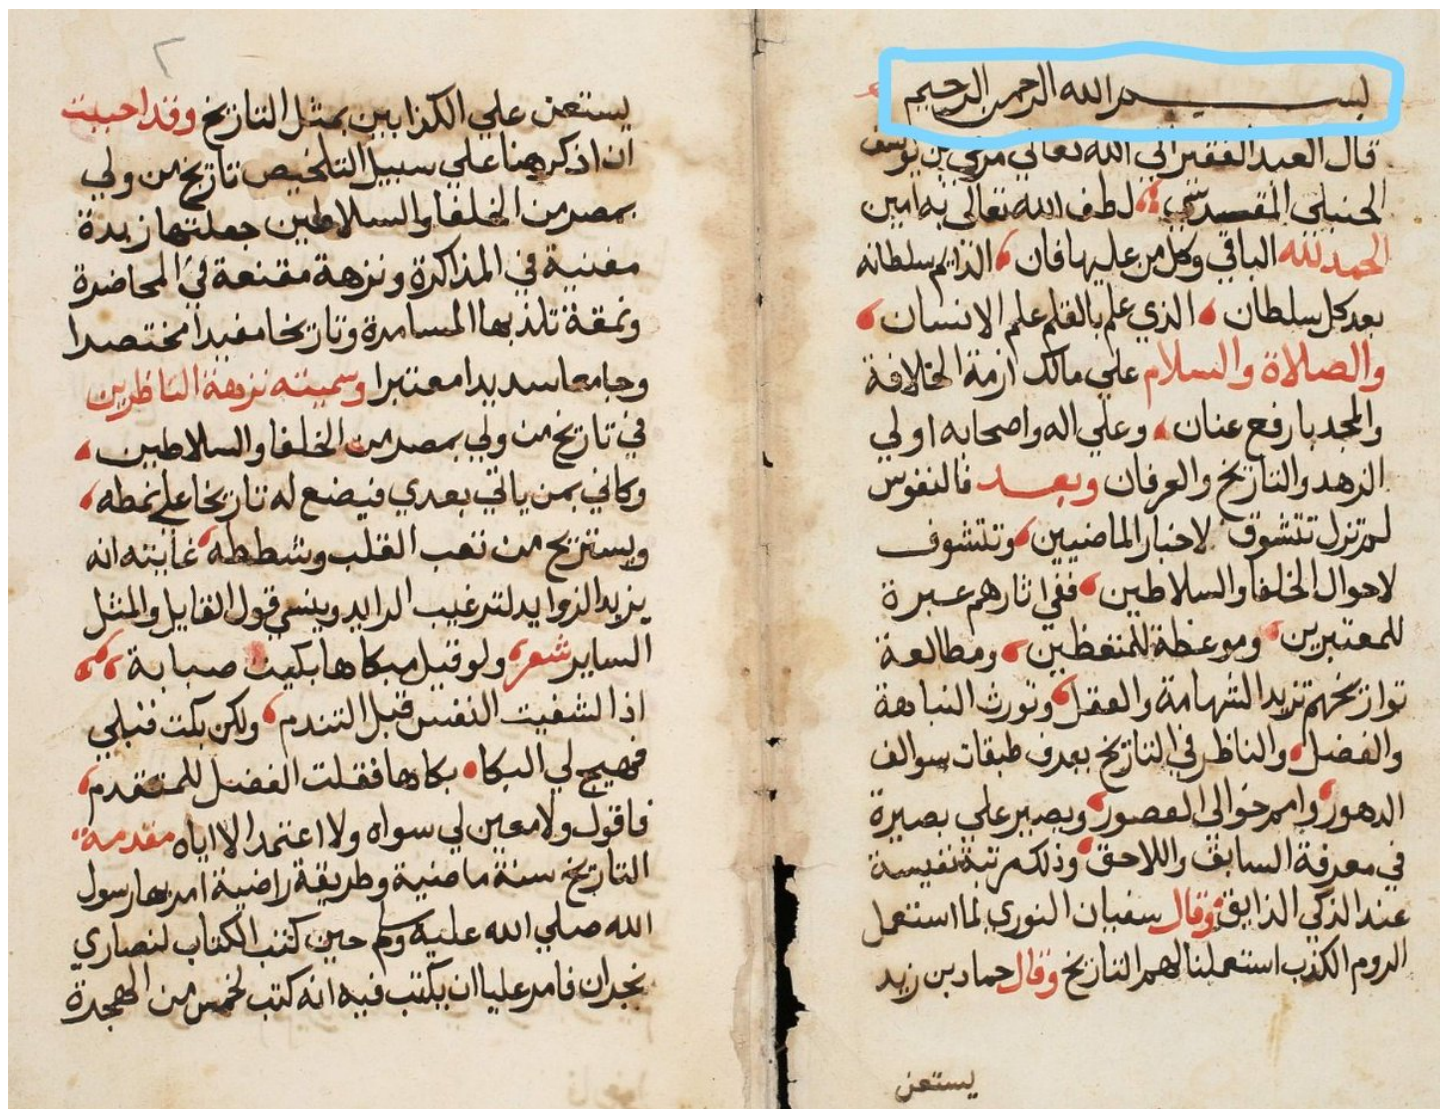 بسم الله الرحمن الرحيم
قال العبد الفقير الي الله تعالي مرعي بن يوسف
الحنبلي المقدسي لطف الله تعالي به امين
الحمد لله الباقي وكل من عليها فان الدايم سلطانه
بعد كل سلطان الذي علم بالقلم علم الانسان
والصلاة والسلام علي مالك ازمة الخلافة
والمجد بارفع عنان وعلي اله واصحابه اولي
الزهد والتاريخ والعرفان وبعد فالنفوس
لم تزل تتشوق لاخبار الماضيين وتتشوف
لاحوال الخلفا والسلاطين ففي اثارهم عبرة
للمعتبرين وموعظة للمتعظين ومطالعة
تواريخهم تزيد الشهامة والعقل وتورث النباهة
والفضل والناظر في التاريخ يعرف طبقات سوالف
الدهور وامر خوالى العصور ويصير علي بصيرة
في معرفة السابق واللاحق وذلك مرتبة نفيسة
عند الذكي الذايق وقال سفيان الثوري لما استعمل
الروم الكذب استعملنا لهم التاريخ وقال حماد بن زيد
يستعن
٢
يستعن علي الكذابين بمثل التاريخ وقد احببت
ان اذكر هنا علي سبيل التلخيص تاريخ من ولي
بمصر من الخلفا والسلاطين جعلتها زبدة
مغنية في المذاكرة ونزهة مقنعة في المحاضرة
ونمقة تلذ بها المسامرة وتاريخا مفيدا مختصرا
وجامعا سديدا معتبرا وسميته نزهة الناظرين
في تاريخ من ولي بمصر من الخلفا والسلاطين
وكاني بمن ياتي بعدي فيضع له تاريخا علي نمطه
ويستريح من تعب القلب وشططه غايته انه
يزيد الزوايد لترغيب الرايد وينسي قول القايل والمثل
الساير شعر ولو قبل مبكاها بكيت صبابة
اذا لشفيت النفس قبل التندم ولكن بكت قبلي
فهيج لي البكا بكاها فقلت الفضل للمتقدم
فاقول ولا معين لي سواه ولا اعتمد الا اياه مقدمة
التاريخ سنة ماضية وطريقة راضية امر بها رسول
الله صلي الله عليه وسلم حين كتب الكتاب لنصاري
نجران فامر عليا ان يكتب فيه انه كتب لخمس من الهجرة